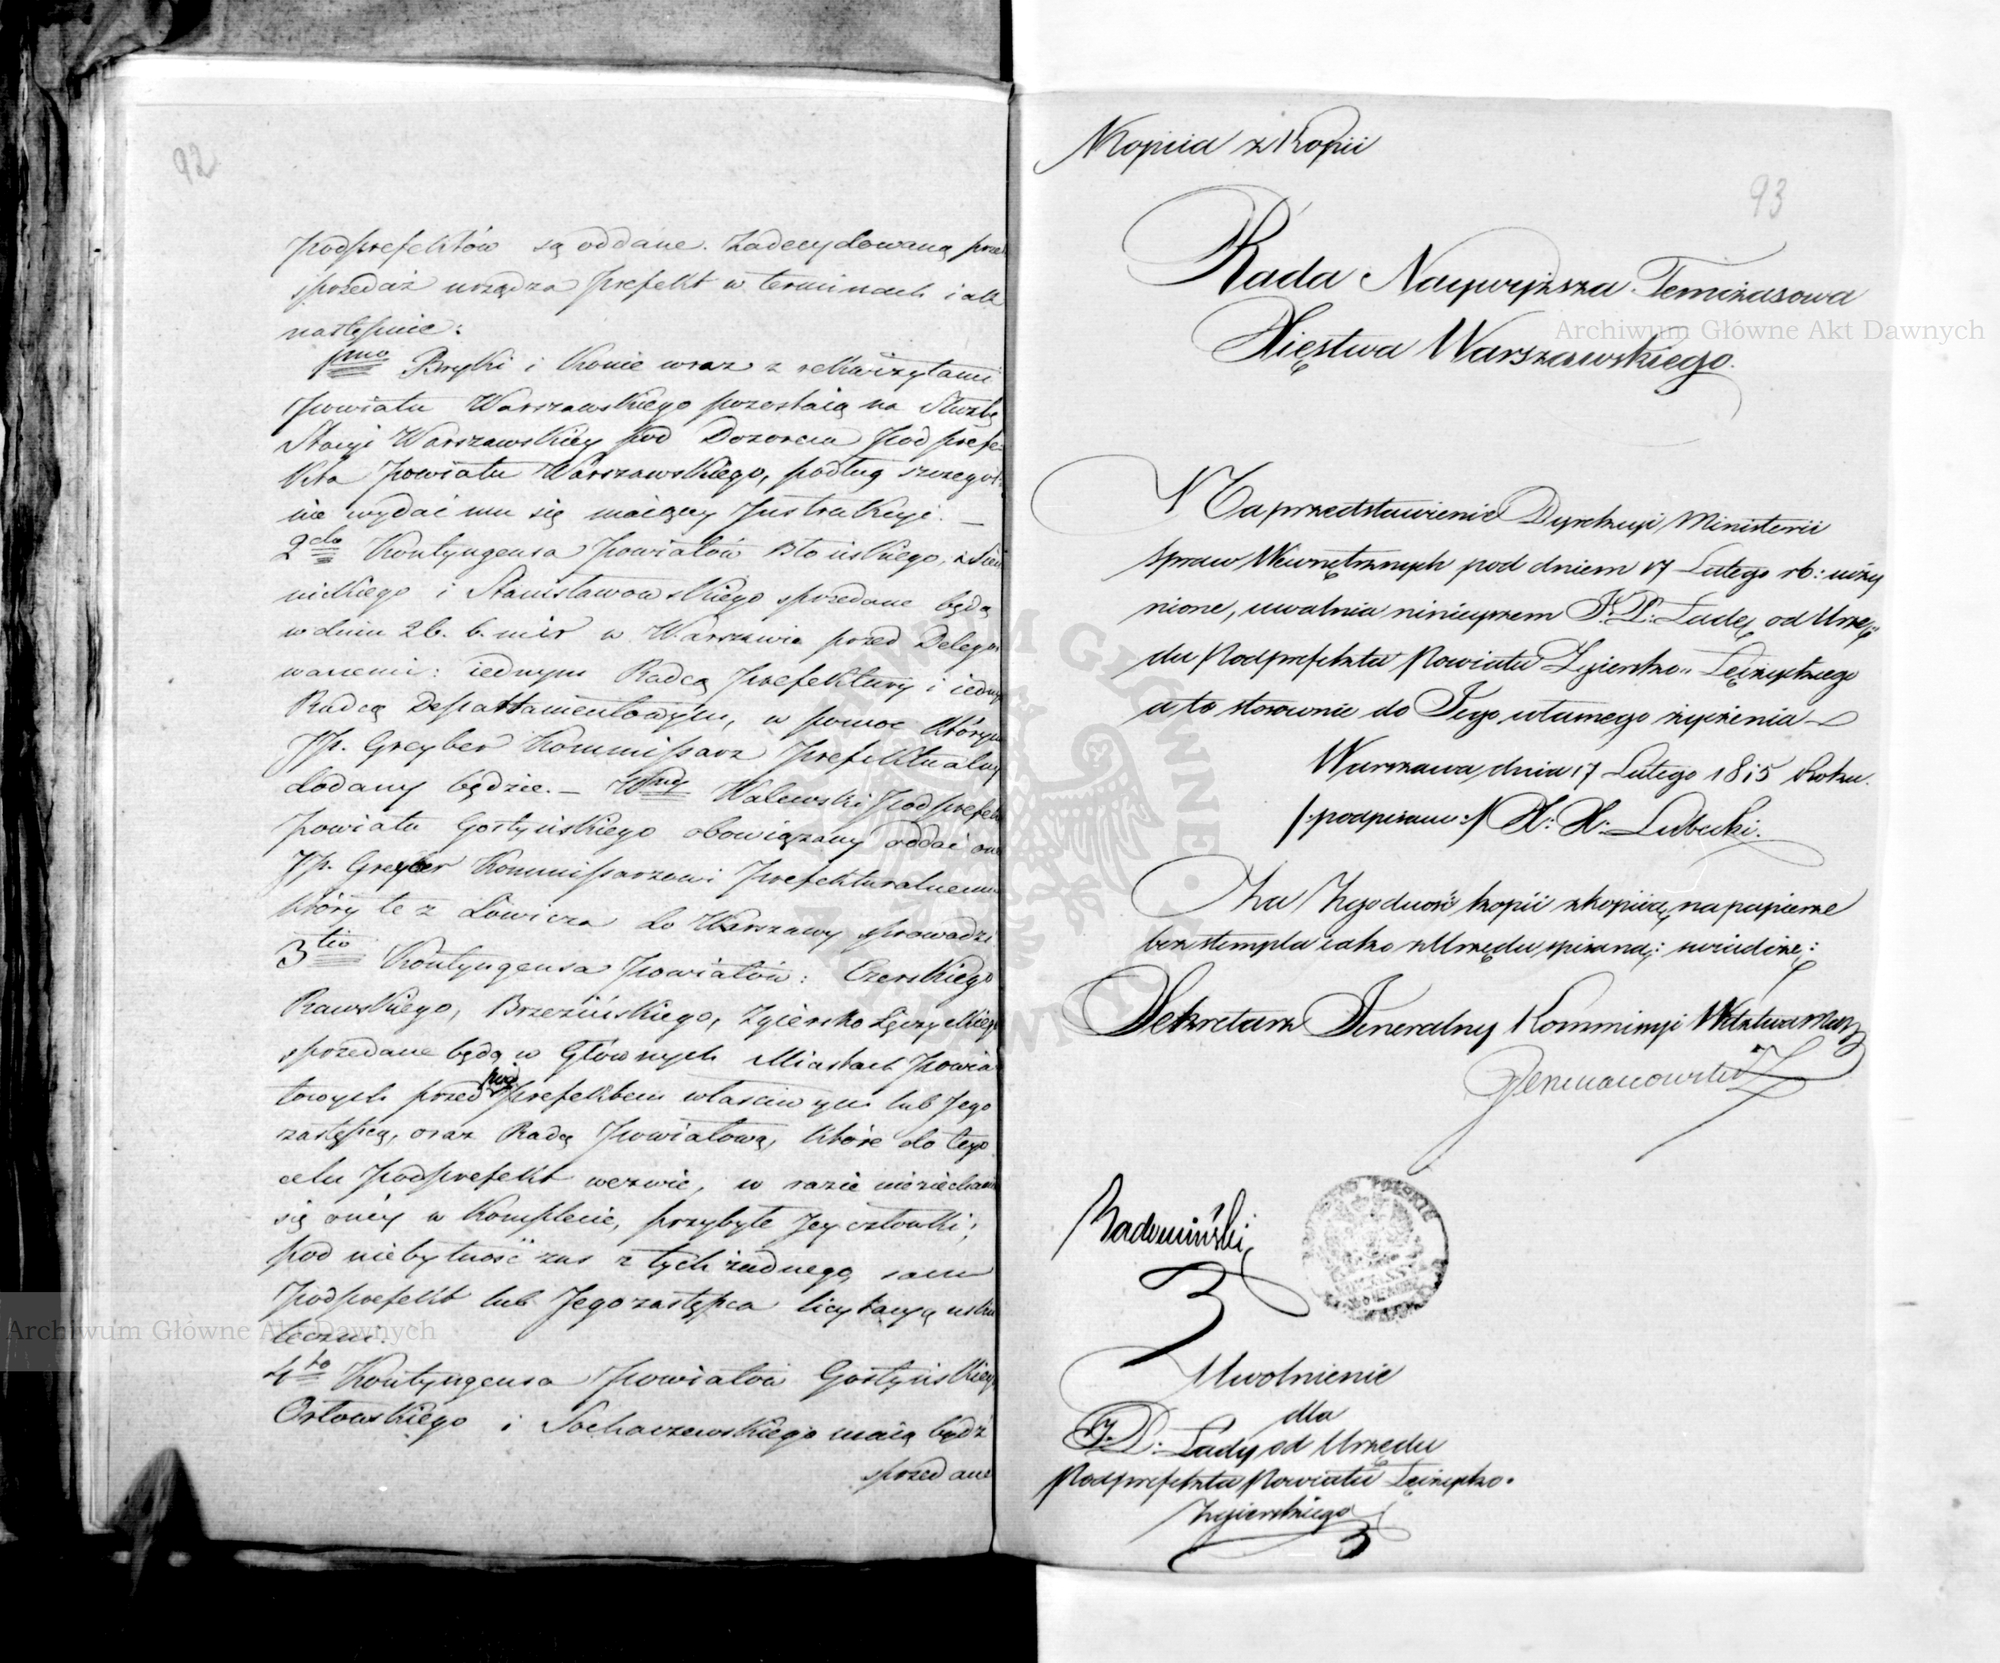 92
Podprefektów są oddane. Zadecydowaną prze
sprzedaż urządza Prefekt w terminach i ak
następnie:
1mo Bryki i Konie wraz z rekwizytami
Powiatu Warszawskiego pozostaią na Służbę
Stacyi Warszawskiey pod Dozorem Podprefe-
kta Powiatu Warszawskiego, podług szczegól-
nie wydać mu się maiącey Instrukcyi. —
2do Kontyngensa Powiatów Błońskiego, z Sien
nickiego i Stanisławowskiego sprzedane będą
w dniu 26. b. mca w Warszawie przed Delego
wanemi: iednym Radcą Prefektury i iednym
Radcą Departamentowym, w pomoc którym
JP. Greyber Kommissarz Prefekturalny
dodany będzie. — Walewski Podprefekt
Powiatu Gostyńskiego obowiązany oddać one
JP. Greyber Kommissarzowi Prefekturalnemu
który te z Łowicza do Warszawy sprowadzi
3tio Kontyngensa Powiatów: Czerskiego
Rawskiego, Brzezińskiego, Zgiersko Łęczyckiego
sprzedane będą w Głównych Miastach Powia
towych przed pod Prefektem właściwym lub Jego
zastępcą, oraz Radą Powiatową, które do tego
celu Podprefekt wezwie, w razie nieziechania
się oney w Komplecie, przybyłe Jey członki;
pod niebytność zaś z tych żadnego, sam
Podprefekt lub Jego zastępca licytacyą usku
teczni.
4to Kontyngensa Powiatów Gostyńskiego
Orłowskiego i Sochaczewskiego maią bydź
sprzedane
Kopiia z Kopii
93
Rada Naywyższa Temczasowa
Xięstwa Warszawskiego.
Na przedstawienie Dyrekcyi Ministerii
Spraw Wewnętrznych pod dniem 17 Lutego rb: uczy
nione, uwalnia ninieyszem J. P: Ladę od Urzę
du Podprefekta Powiatu Zgiersko-Łęczyckiego
a to stosownie do Jego własnego życzenia —
Warszawa dnia 17 Lutego 1815 Roku.
/:podpisano:/ X: X: Lubecki.
Za Zgodność kopii z kopiią, na papierze
bez stempla iako z Urzędu spisaną: wiedzie:
Sekretarz Generalny Kommissyi Wdztwa Maz
Radomiński
Uwolnienie
dla
J. P: Lady od Urzędu
Podprefekta Powiatu Łęczycko-
Zgierskiego
Archiwum Główne Akt Dawnych
Archiwum Główne Akt Dawnych